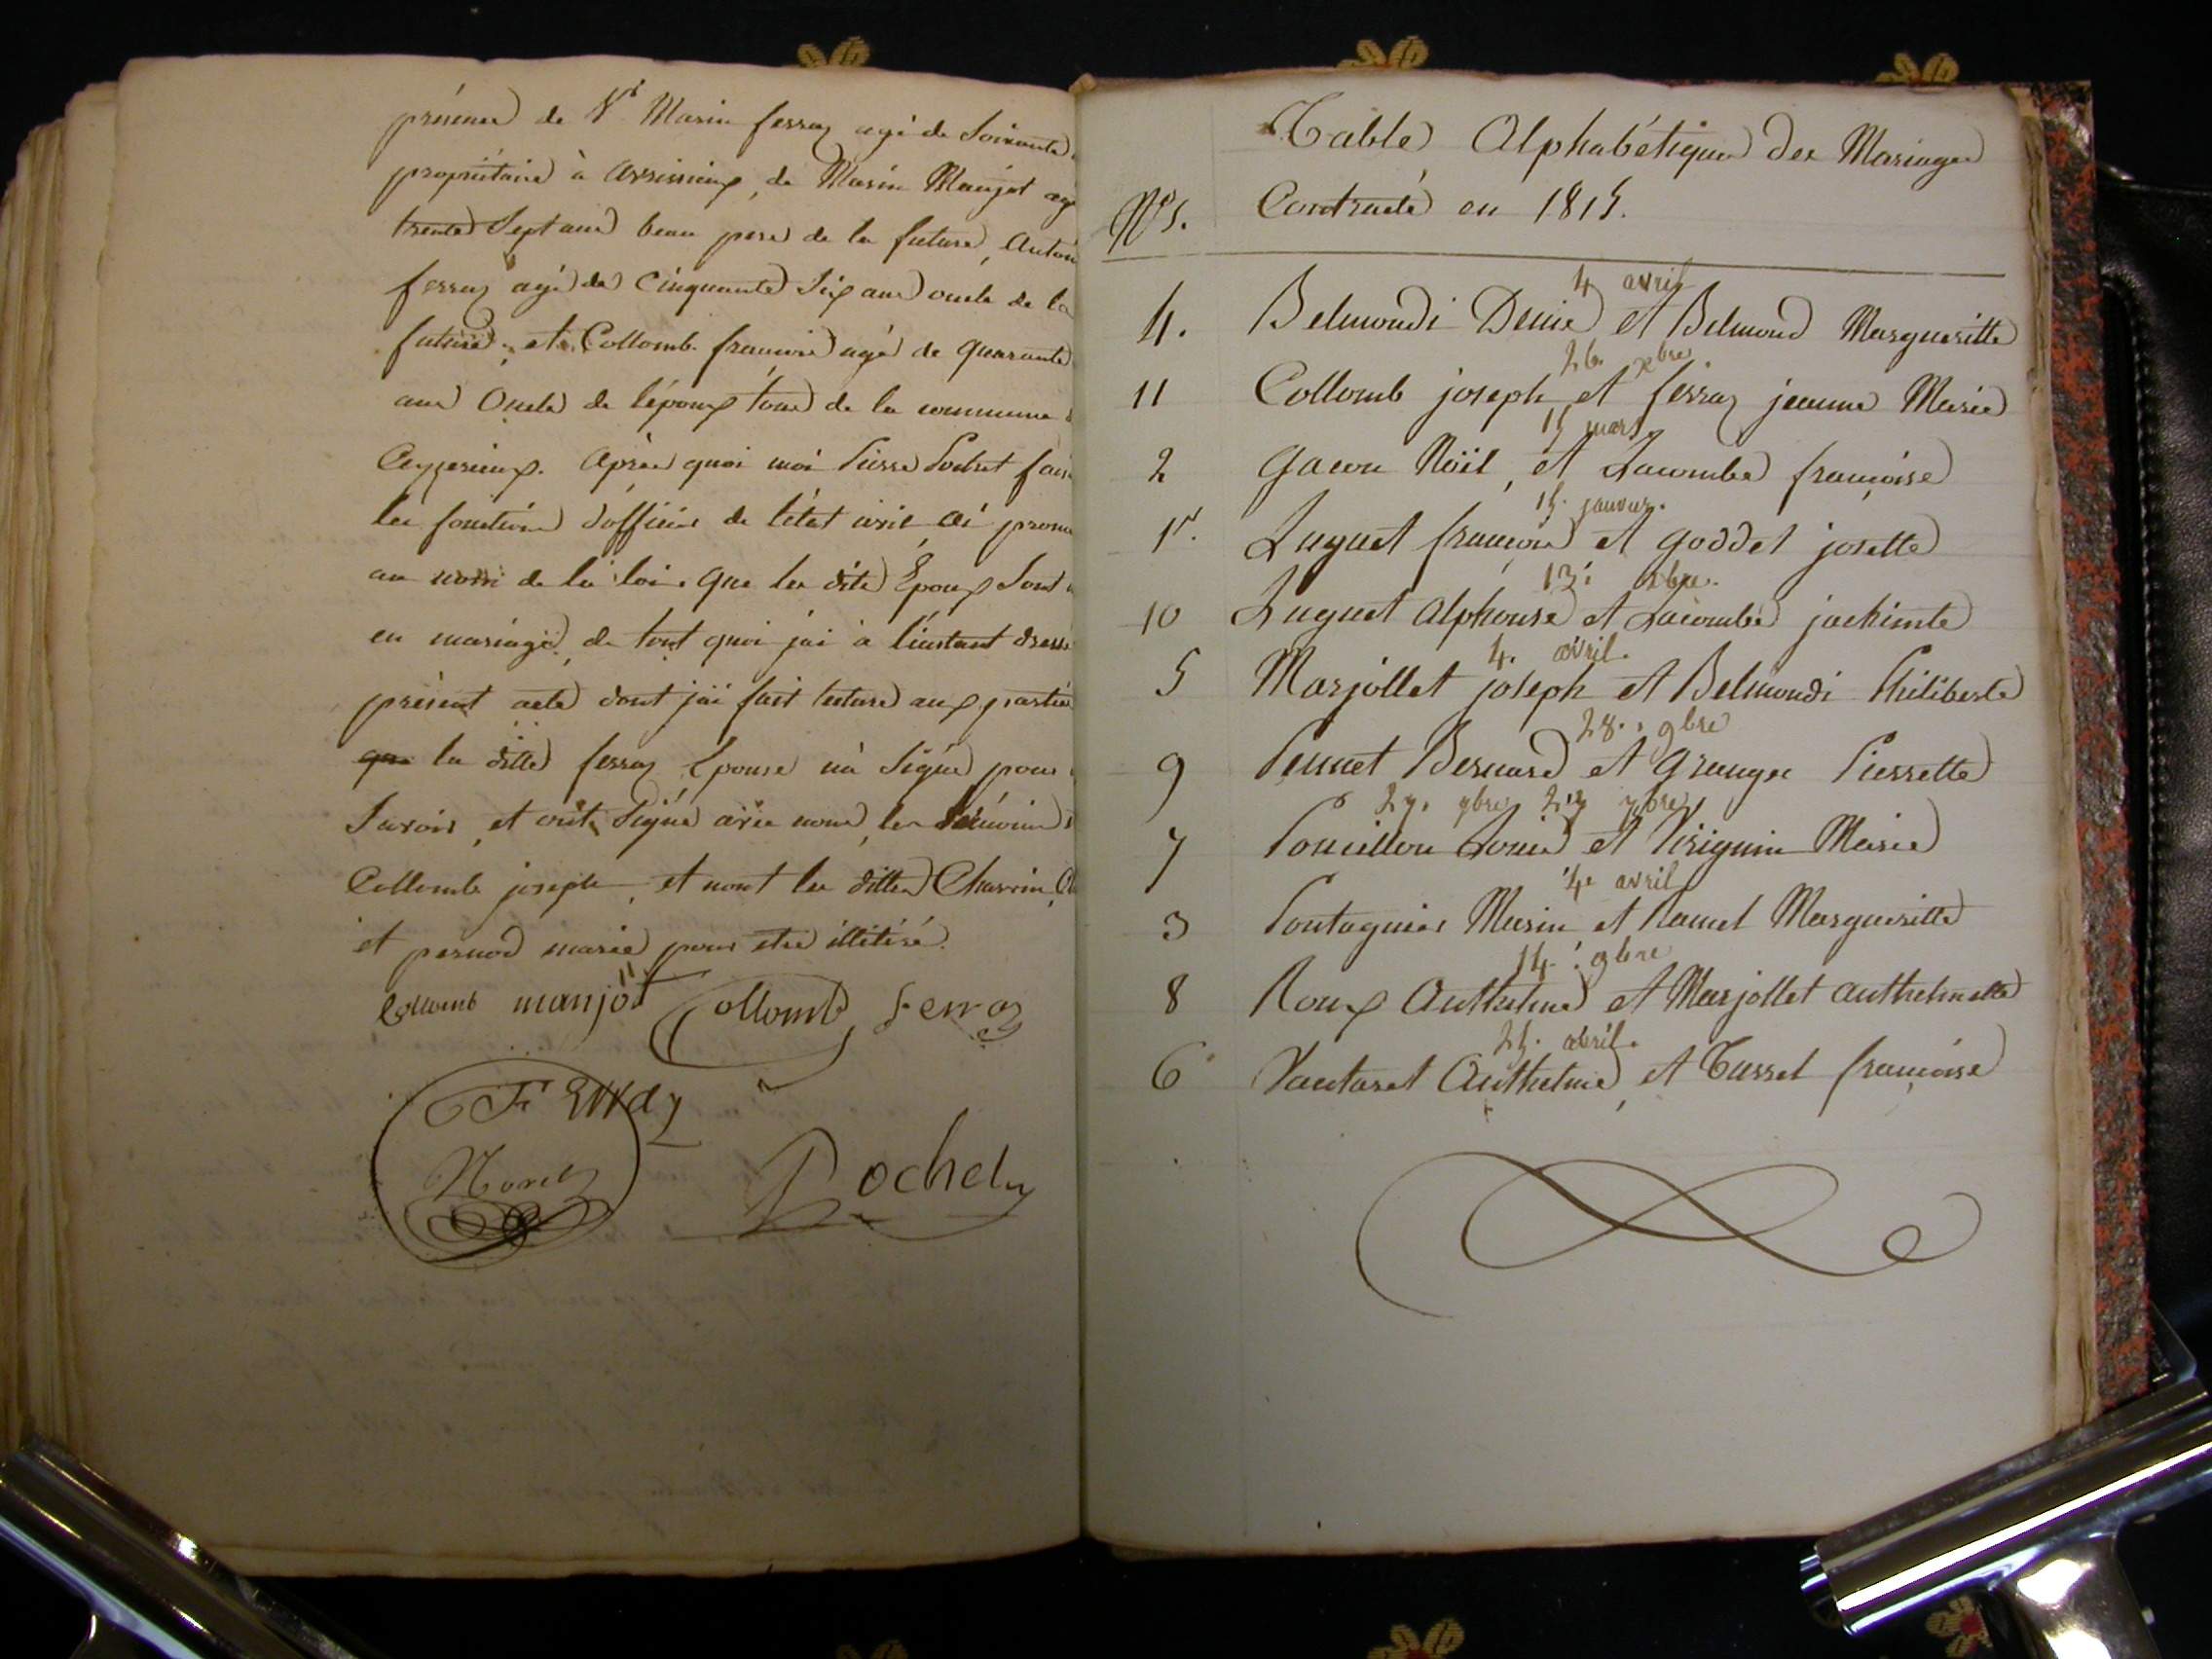 présence de Sr Marin ferraz agé de Soixante
propriétaire à arvissieux, de Marin Manjot agé
trente Sept ans beau pere de la future, Antoi
ferraz agé de Cinquante Six ans oncle de la
future, et Collomb françois agé de quarante
ans Oncle de l'époux tous de la commune
Ceyzerieux. Après quoi moi Pierre Pochet fais
les fonctions d'officier de l'état civil, ai prono
au nom de la loi que les dits Époux Sont
en mariage, de tout quoi jai à linstant dressé
présent acte dont jai fait lecture aux parties
que la ditte ferraz Epouse n'à Signé pour
Savoir, et ont Signé avec nous, les témoins
Collomb joseph, et nont les dittes Charvin,
et pernod marie pour etre illitiré.
Collomb manjot Collomb Ferraz
F Ferraz
Pochet
Table Alphabétique des Mariages
Nos. Contracté en 1815.
4 avril
4. Belmondi Denis et Belmond Margueritte
26 xbre
11 Collomb joseph et ferraz jeanne Marie
15 mars
2 Gacon Noël, et Lacombe françoise
15. janvier.
1er. Luguet françois et goddet josette
13: xbre.
10 Luguet Alphonse et Lacombe jackinte
4. avril.
5 Marjollet joseph et Belmondi Philiberte
28. 9bre
9 Pennet Bernard et Grange Pierrette
27. 7bre
7 Poncillon Louis et Virignin Marie
4. avril
3 Pontagnier Marin et Ramel Margueritte
14. 9bre
8 Roux Anthelme et Marjollet anthelmette
25. abril.
6 Vautaret Anthelme, et Tusset françoise